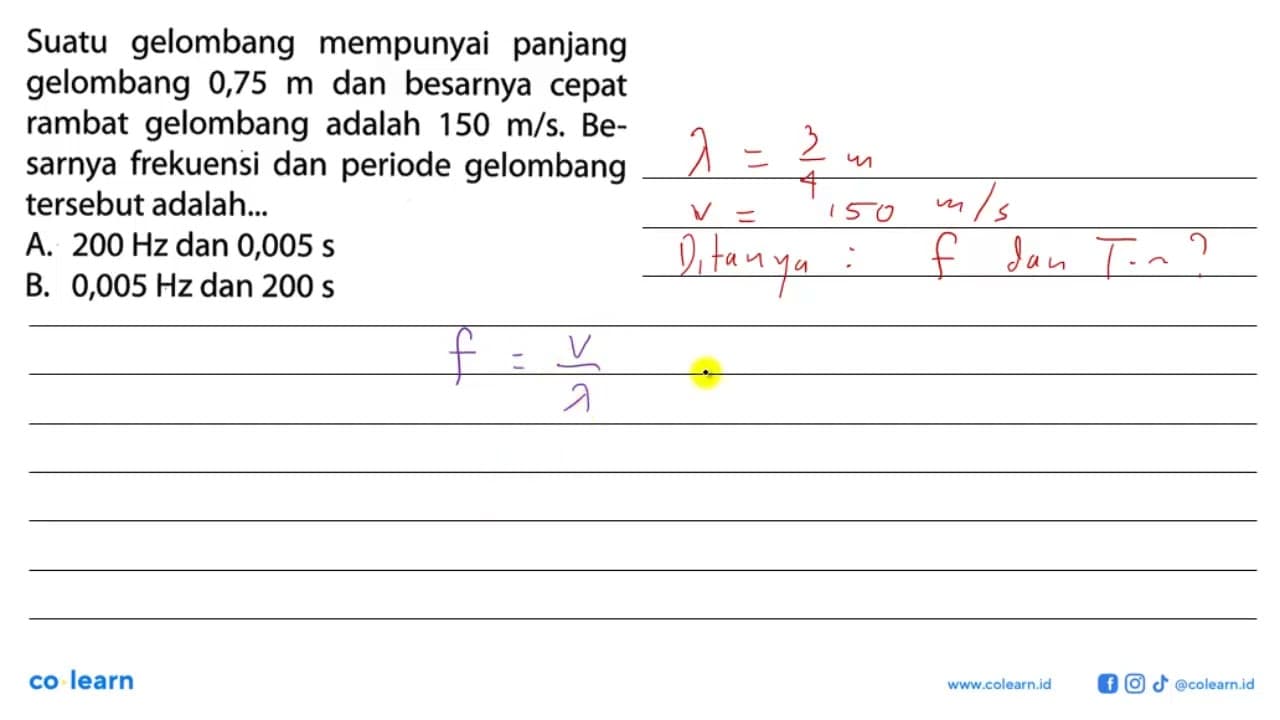 Suatu gelombang mempunyai panjang
gelombang 0,75 m dan besarnya cepat
rambat gelombang adalah 150 m/s. Be-
sarnya frekuensi dan periode gelombang
tersebut adalah...
A. 200 Hz dan 0,005 s
B. 0,005 Hz dan 200 s
λ = 3/4 m
v = 150 m/s
Ditanya : f dan T..~?
f = v/λ
co learn
www.colearn.id
@colearn.id